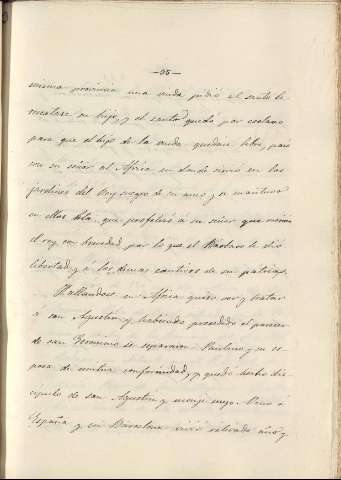 —95—
misma provincia una viuda pidió al santo le
rescatase su hijo, y el santo quedó por esclavo
para que el hijo de la viuda quedase libre, pasó
con su señor al Africa en donde sirvió en los
jardines del Rey suegro de su amo y se mantuvo
en ellos hta. que profetizó a su señor que moriria
el rey con brevedad por lo que el Bárbaro le dió
libertad y á los demas cautivos de su patria.
Hallandose en Africa quiso ver y tratar
a san Agustin y habiendo precedido el parecer
de san Geronimo se separaron Paulino y su es-
posa de mutua conformidad, y quedó hecho dis-
cipulo de san Agustin y monje suyo. Vino á
España y en Barcelona vivió retirado año y